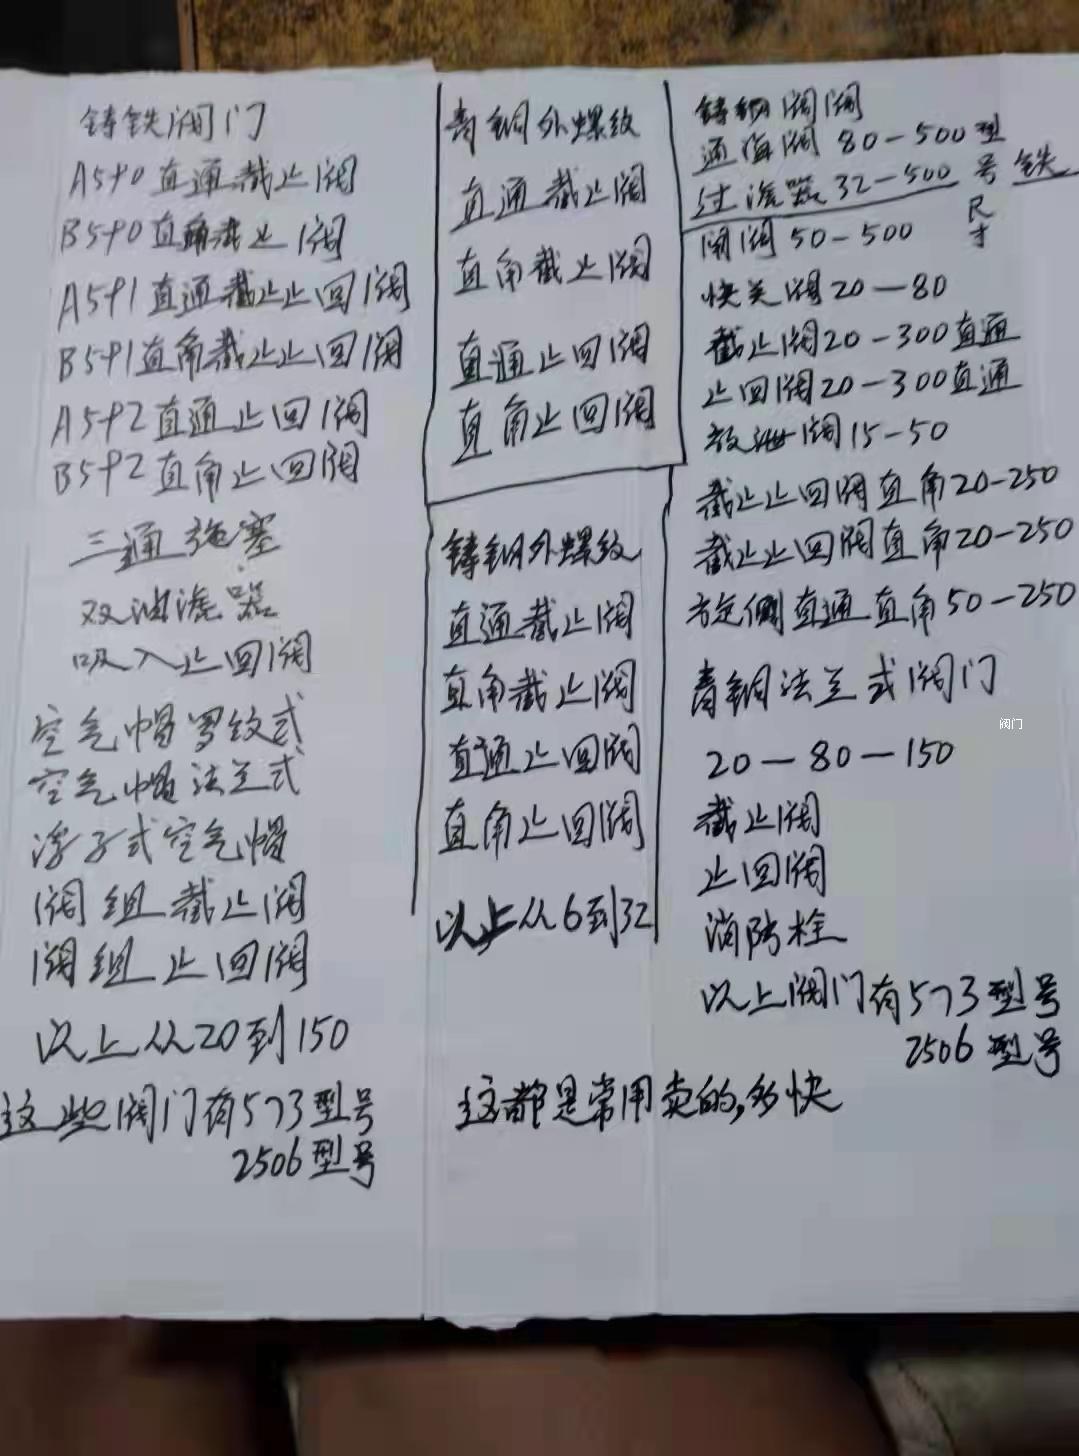 铸铁阀门
A590直通截止阀
B590直角截止阀
A591直通截止止回阀
B591直角截止止回阀
A592直通止回阀
B592直角止回阀
三通旋塞
双油滤器
吸入止回阀
空气帽罗纹式
空气帽法兰式
浮子式空气帽
阀组截止阀
阀组止回阀
以上从20到150
这些阀门有573型号
2506型号
青铜外螺纹
直通截止阀
直角截止阀
直通止回阀
直角止回阀
铸钢外螺纹
直通截止阀
直角截止阀
直通止回阀
直角止回阀
以上从6到32
这都是常用卖的,多快
铸钢阀阀
通海阀 80-500型
过滤器 32-500号 铁
闸阀 50-500 尺寸
快关阀20-80
截止阀20-300直通
止回阀20-300直通
放泄阀15-50
截止止回阀直角20-250
截止止回阀直角20-250
直通直角50-250
青铜法兰式阀门
阀门
20-80-150
截止阀
止回阀
消防栓
以上阀门有573型号
2506型号